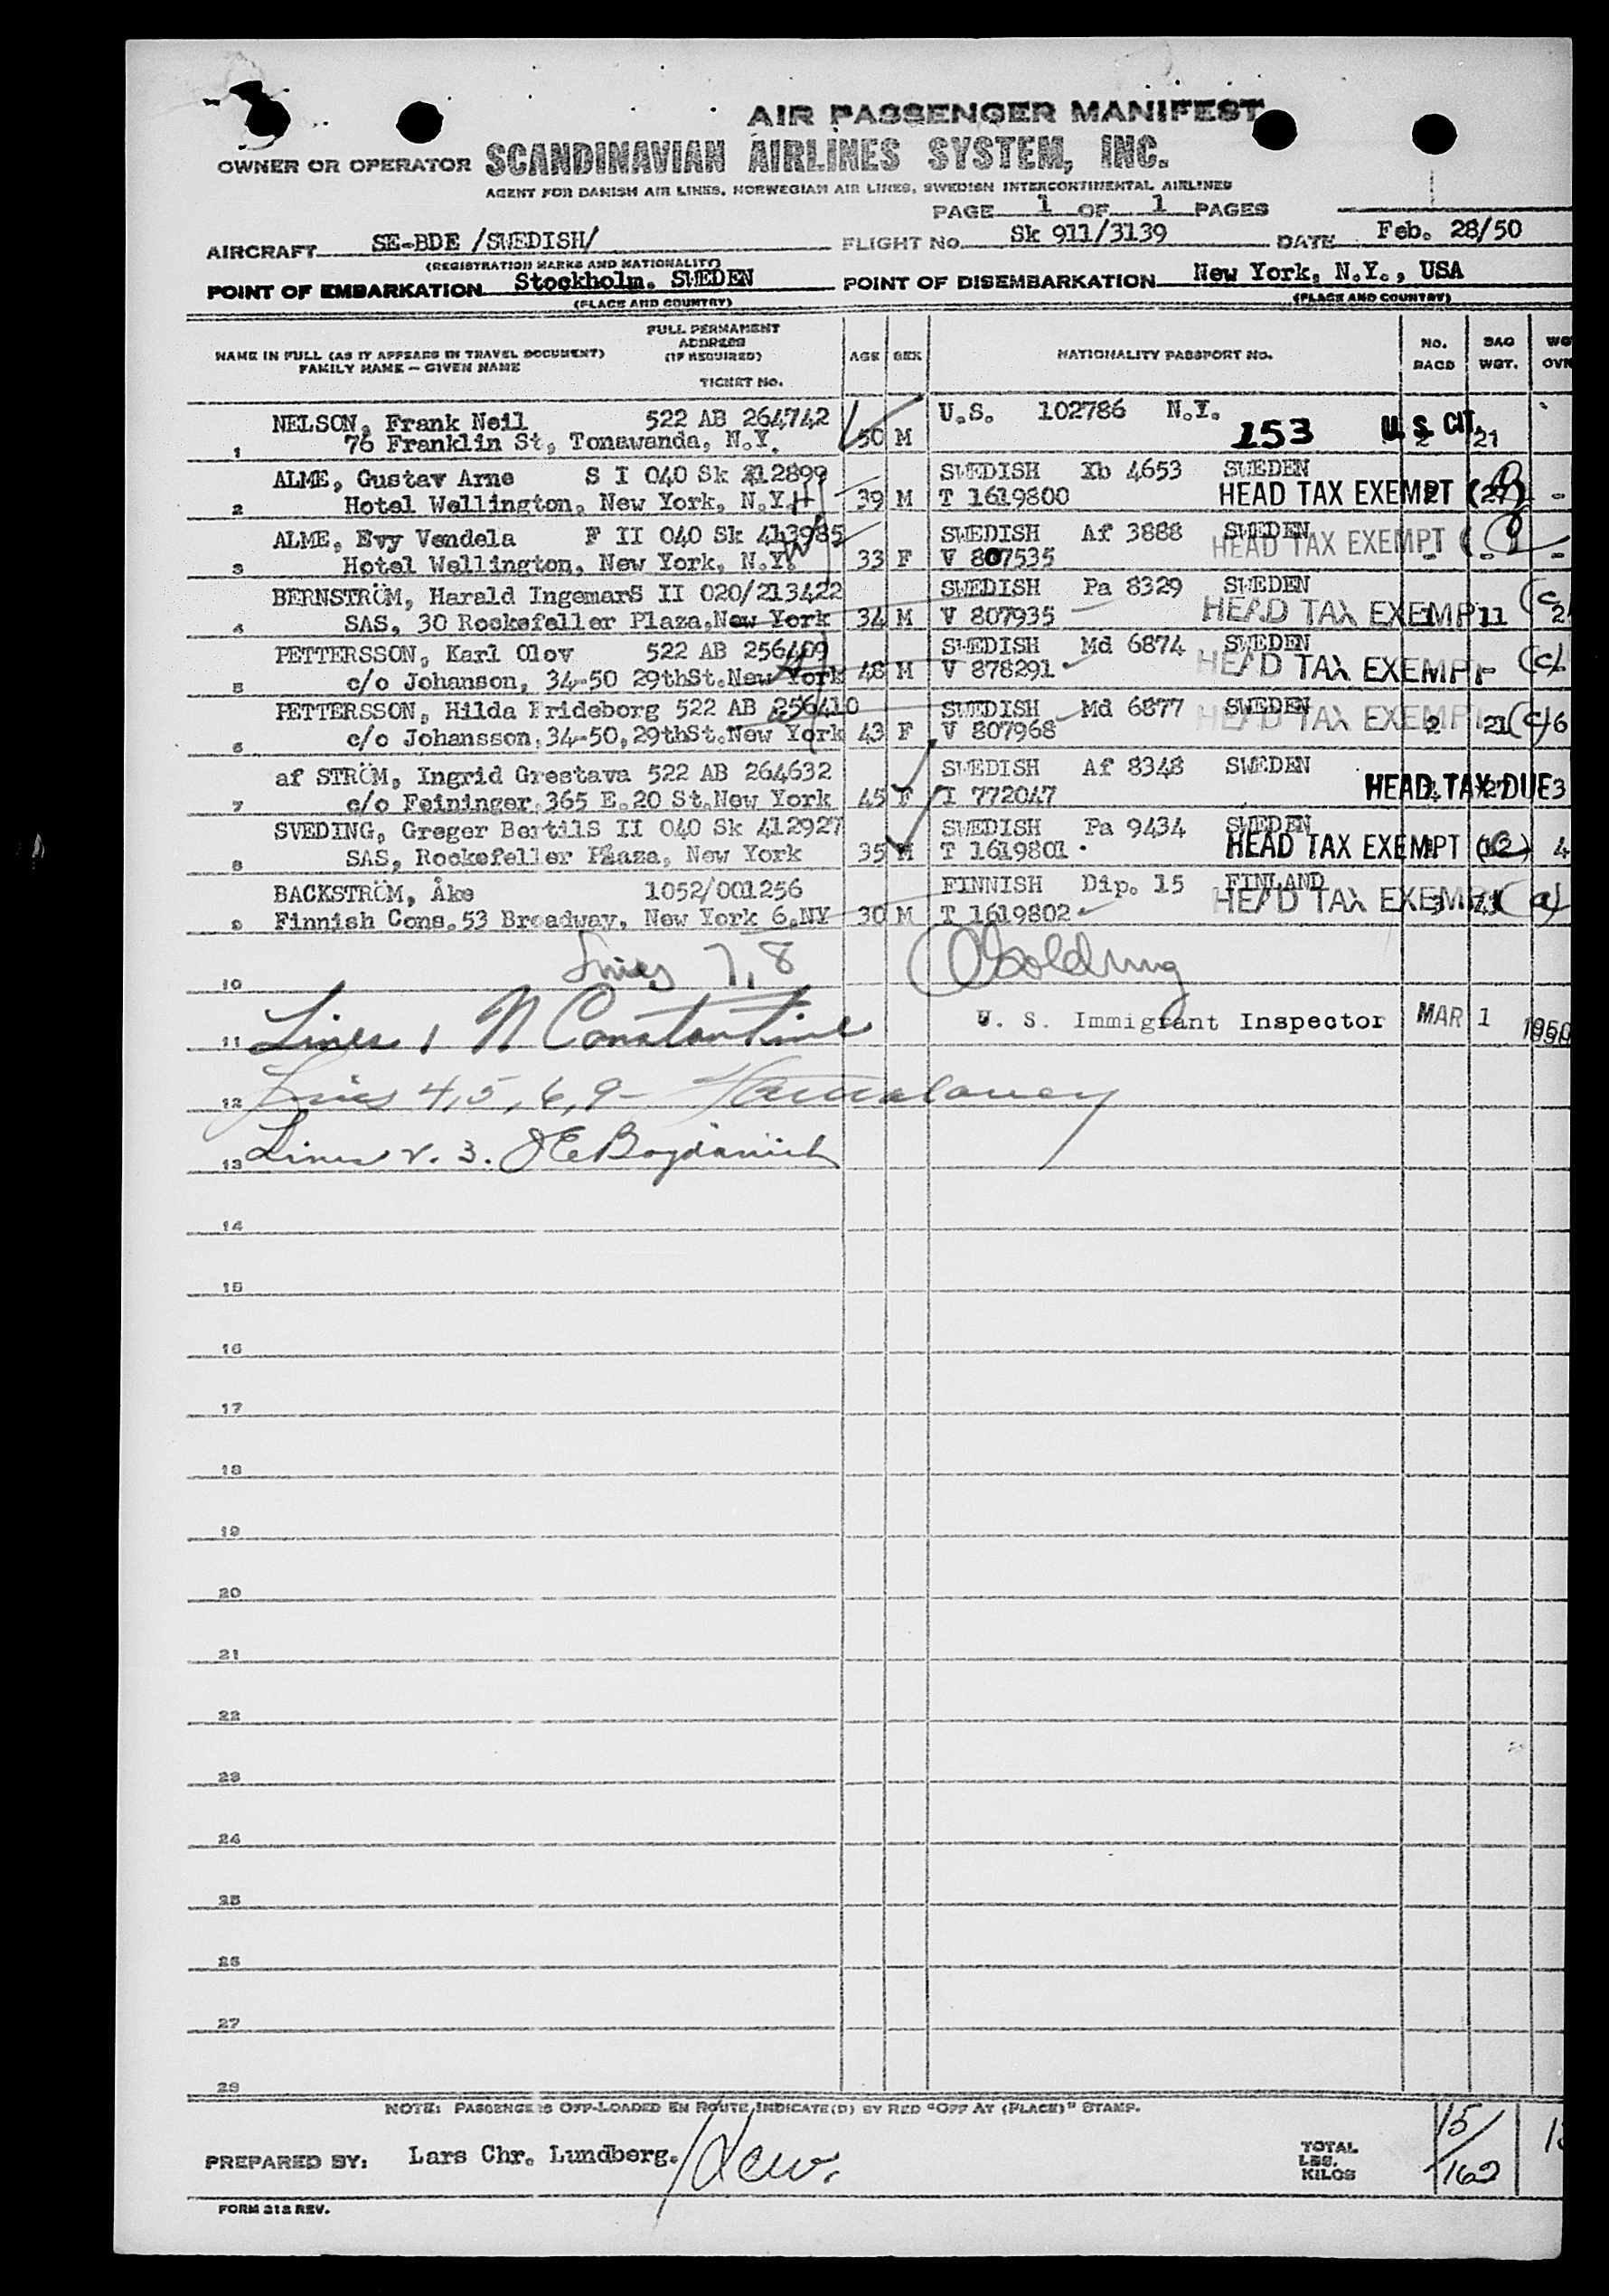 AIR PASSENGER MANIFEST
OWNER OR OPERATOR SCANDINAVIAN AIRLINES SYSTEM, INC.
AGENT FOR DANISH AIR LINES, NORWEGIAN AIR LINES, SWEDISH INTERCONTINENTAL AIRLINES
PAGE 1 OF 1 PAGES
AIRCRAFT SE-BDE /SWEDISH/ FLIGHT NO. Sk 911/3139 DATE Feb. 28/50
(REGISTRATION MARKS AND NATIONALITY)
POINT OF EMBARKATION Stockholm. SWEDEN POINT OF DISEMBARKATION New York, N.Y., USA
(PLACE AND COUNTRY) (PLACE AND COUNTRY)
NAME IN FULL (AS IT APPEARS IN TRAVEL DOCUMENT) FAMILY NAME — GIVEN NAME FULL PERMANENT ADDRESS (IF REQUIRED) TICKET NO. AGE SEX NATIONALITY PASSPORT NO. NO. BAGS BAG WGT.
NELSON, Frank Neil 522 AB 264742 U.S. 102786 N.Y.
1 76 Franklin St, Tonawanda, N.Y. 50 M 153 U.S. CIT. 2 21
ALME, Gustav Arne S I 040 Sk 412899 SWEDISH Xb 4653 SWEDEN
2 Hotel Wellington, New York, N.Y. H 39 M T 1619800 HEAD TAX EXEMPT 2 -
ALME, Evy Vendela F II 040 Sk 413985 SWEDISH Af 3888 SWEDEN
3 Hotel Wellington, New York, N.Y. W 33 F V 807535 HEAD TAX EXEMPT - - -
BERNSTRÖM, Harald IngemarS II 020/213422 SWEDISH Pa 8329 SWEDEN
4 SAS, 30 Rockefeller Plaza,New York 34 M V 807935 HEAD TAX EXEMPT 1 11 (c 2
PETTERSSON, Karl Olov 522 AB 256409 SWEDISH Md 6874 SWEDEN
5 c/o Johanson, 34-50 29thSt.New York 48 M V 878291 HEAD TAX EXEMPT - (c)
PETTERSSON, Hilda Frideborg 522 AB 256410 SWEDISH Md 6877 SWEDEN
6 c/o Johansson,34-50,29thSt.New York 43 F V 807968 HEAD TAX EXEMPT 2 21 (c) 6
af STRÖM, Ingrid Grestava 522 AB 264632 SWEDISH Af 8348 SWEDEN
7 c/o Feininger,365 E.20 St.New York 45 F I 772047 HEAD TAX DUE 27 3
SVEDING, Greger BertilS II 040 Sk 412927 SWEDISH Pa 9434 SWEDEN
8 SAS, Rockefeller Plaza, New York 35 M T 1619801 HEAD TAX EXEMPT 4
BACKSTRÖM, Åke 1052/001256 FINNISH Dip. 15 FINLAND
9 Finnish Cons.53 Broadway, New York 6.NY 30 M T 1619802 HEAD TAX EXEMPT 3 (a)
10 Lines 7, 8 Golding
11 Lines 1 N Constantine U. S. Immigrant Inspector MAR 1 1950
12 Lines 4, 5, 6, 9 -
13 Lines 2. 3. JE Bogdanich
14
15
16
17
18
19
20
21
22
23
24
25
26
27
28
NOTE: PASSENGERS OFF-LOADED EN ROUTE INDICATE(D) BY RED "OFF AT (PLACE)" STAMP.
PREPARED BY: Lars Chr. Lundberg. TOTAL LBS. KILOS 15/162
FORM 318 REV.